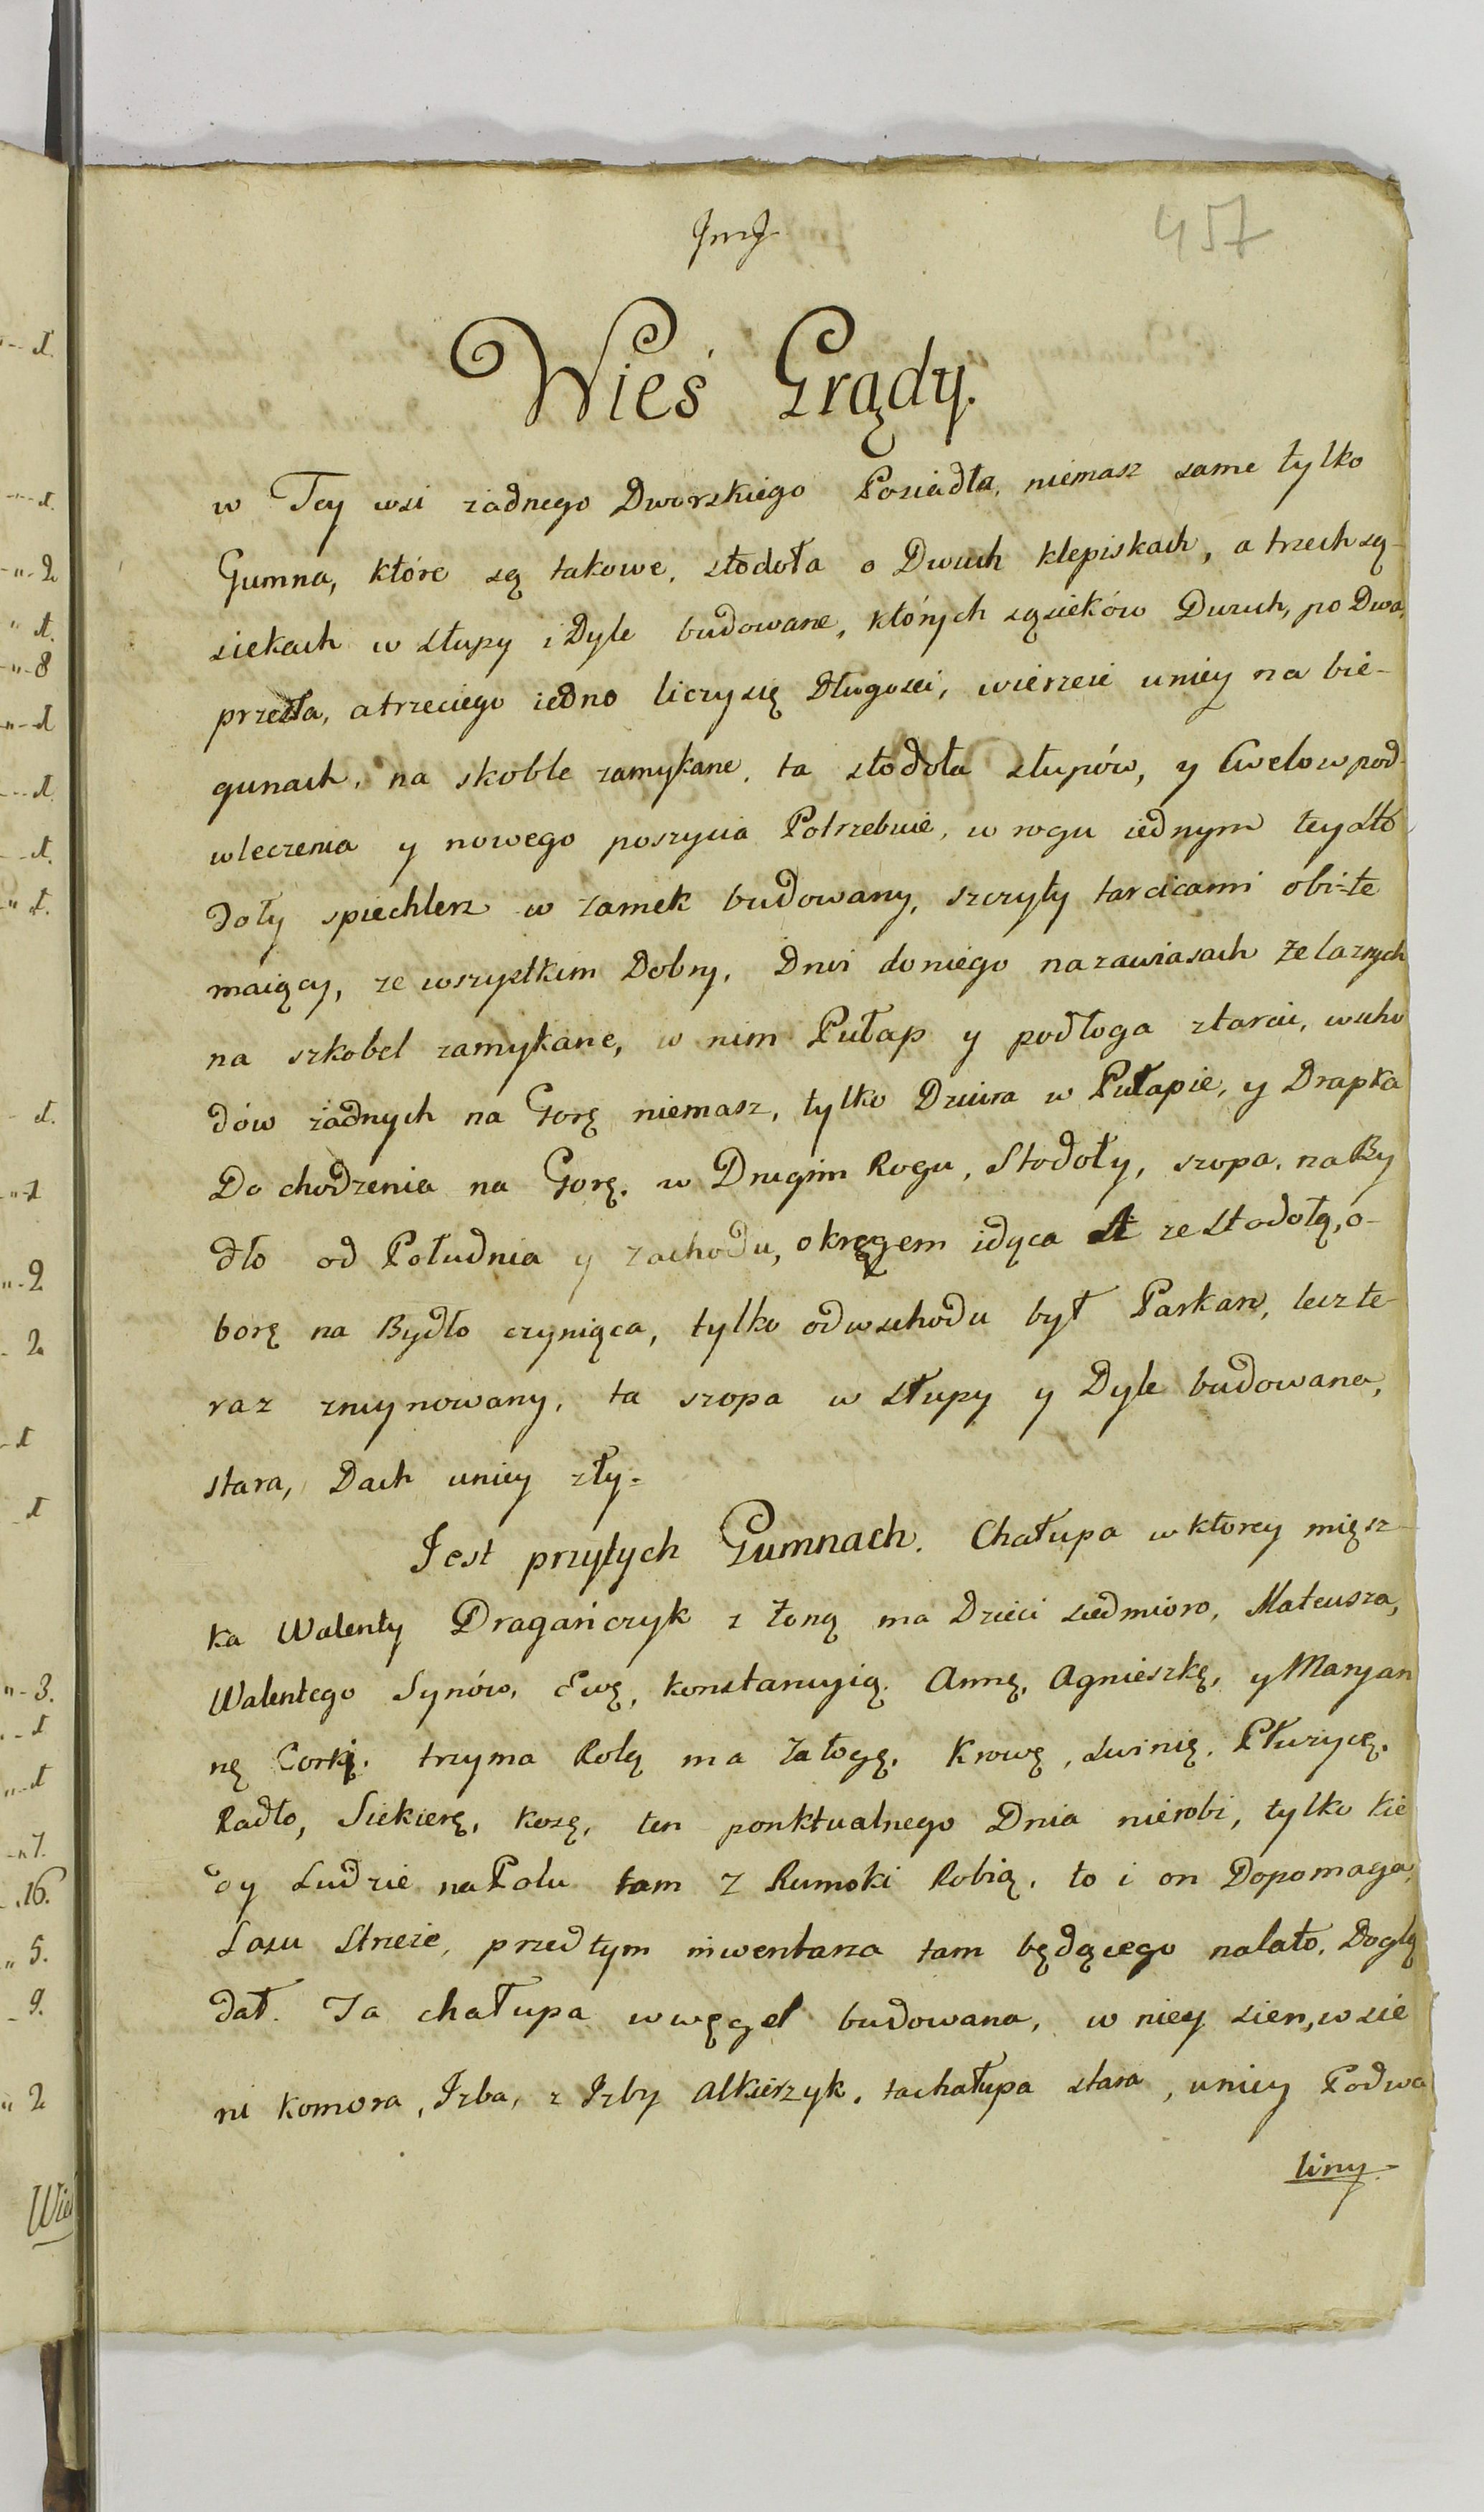 JmJ
457
Wieś Grądy.
w Tey wsi zadnego Dworskiego Posiadła, niemasz same tylko
Gumna, które są takowe, stodoła o Dwuch klepiskach, a trzech są-
siekach w słupy i Dyle budowane, których sąsieków Dwuch, po Dwa,
przęsła, a trzeciego iedno liczy się Długosci, wierzeie uniey na bie-
gunach, na skoble zamykane, ta stodoła słupów, y Cwelow pod-
wleczenia y nowego poszycia Potrzebuie, w rogu iednym tey Sto
doły spiechlerz w zamek budowany, szczyty tarcicami obi-te
maiący, ze wszystkim Dobry, Drwi do niego na zawiasach Żelaznych
na szkobel zamykane, w nim Pułap y podłoga ztarcic, wscho
dów żadnych na Gorę niemasz, tylko Dziura w Pułapie, y Drapka
Do chodzenia na Gorę. w Drugim Rogu, Stodoły, szopa, na By
dło od Południa y zachodu, okręgem idąca ze Stodołą, o-
borę na Bydło czyniąca, tylko odwschodu był Parkan, lecz te
raz zruynowany, ta szopa w słupy y Dyle budowana,
stara, Dach uniey zły=
Jest przytych Gumnach. Chałupa w ktorey miesz-
ka Walenty Dragańczyk z Żoną ma Dzieci siedmioro, Mateusza,
Walentego Synów, Ewę, konstancyią. Annę, Agnieszkę, y Maryan
nę Corki. trzyma Rolą ma Załogę, Krowę, swinię, Płużycę.
Radło, Siekierę, kosę, ten ponktualnego Dnia nierobi, tylko kie
dy Ludzie na Polu tam z Rumoki Robią, to i on Dopomaga,
Lasu Strzeże, przedtym inwentarza tam będącego nalato, Doglą
dał. Ta chałupa w węgeł budowana, w niey sien, w sie
ni komora, Izba, z Izby alkierzyk, ta chałupa stara, uniey Podwa
liny.